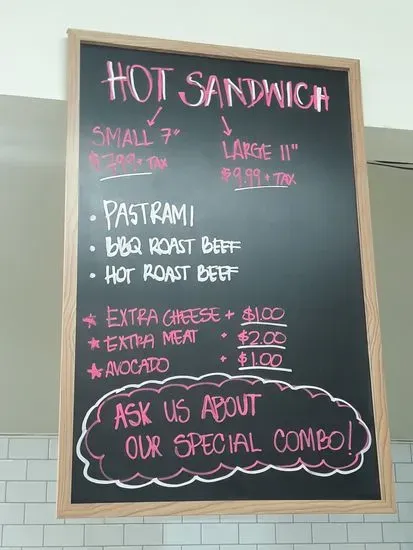 HOT SANDWICH
SMALL 7"
$7.99 + TAX
LARGE 11"
$9.99 + TAX
• PASTRAMI
• BBQ ROAST BEEF
• HOT ROAST BEEF
★ EXTRA CHEESE + $1.00
★ EXTRA MEAT + $2.00
★ AVOCADO + $1.00
ASK US ABOUT
OUR SPECIAL COMBO!